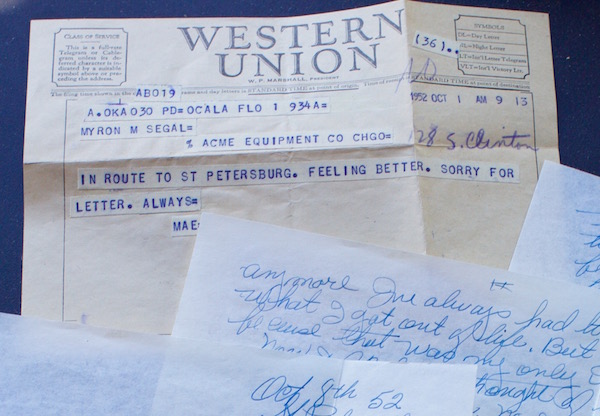 CLASS OF SERVICE
This is a full-rate
Telegram or Cable-
gram unless its de-
ferred character is in-
dicated by a suitable
symbol above or pre-
ceding the address.
WESTERN
UNION
W. P. MARSHALL, PRESIDENT
(36)..
SYMBOLS
DL=Day Letter
NL=Night Letter
LT=Int'l Letter Telegram
VLT=Int'l Victory Ltr.
The filing time shown in the date line on STANDARD TIME at point of origin. Time of
STANDARD TIME at point of destination
AB019
A.OKA030 PD=OCALA FLO 1 934A=
1952 OCT 1 AM 9 13
MYRON M SEGAL=
% ACME EQUIPMENT CO CHGO=
128 S. Clinton
IN ROUTE TO ST PETERSBURG. FEELING BETTER. SORRY FOR
LETTER. ALWAYS=
MAE=
anymore I've always had
what I got out of life. But
because that was my only
thought
Oct 8th 52